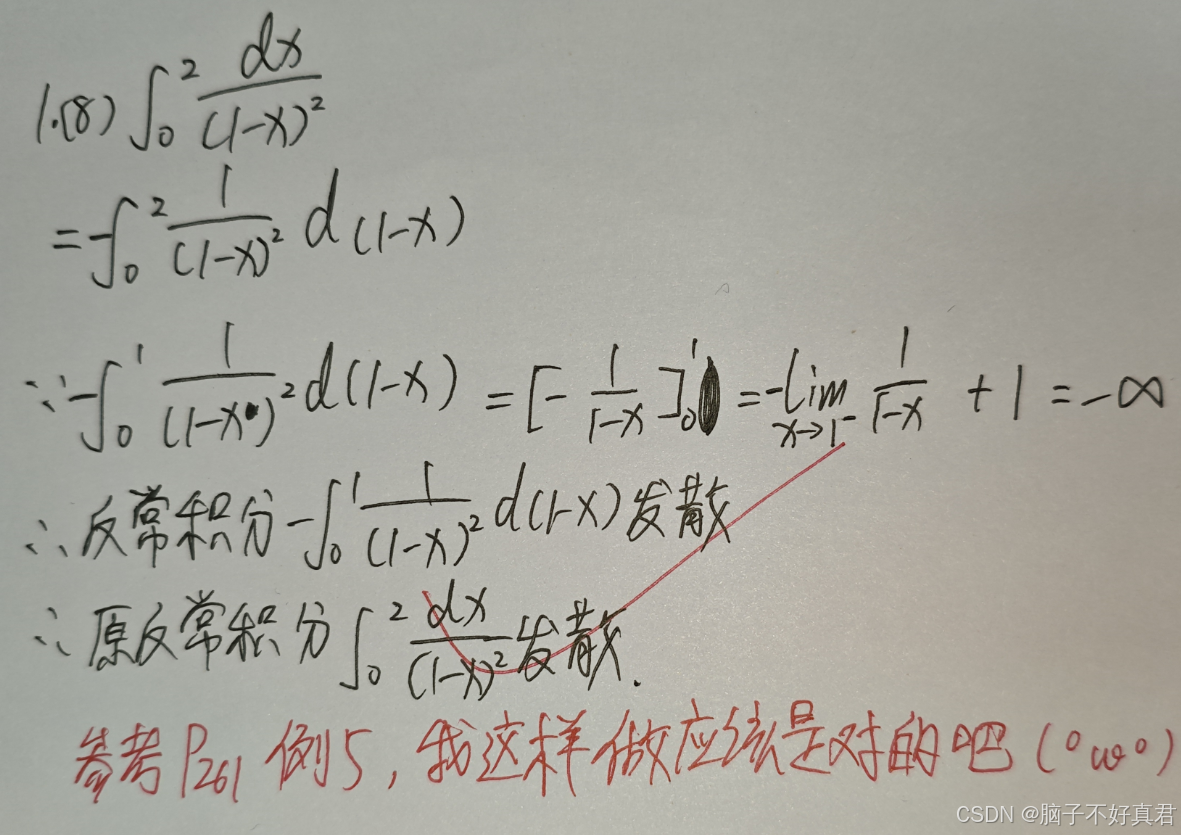 1.(8) ∫₀² dx/(1-x)²
= -∫₀² 1/(1-x)² d(1-x)
∵ -∫₀¹ 1/(1-x)² d(1-x) = [-1/(1-x)]₀¹ = -lim x→1⁻ 1/(1-x) + 1 = -∞
∴ 反常积分 -∫₀¹ 1/(1-x)² d(1-x) 发散
∴ 原反常积分 ∫₀² dx/(1-x)² 发散.
参考P₂₆₁例5,我这样做应该是对的吧(°ω°)
CSDN @脑子不好真君